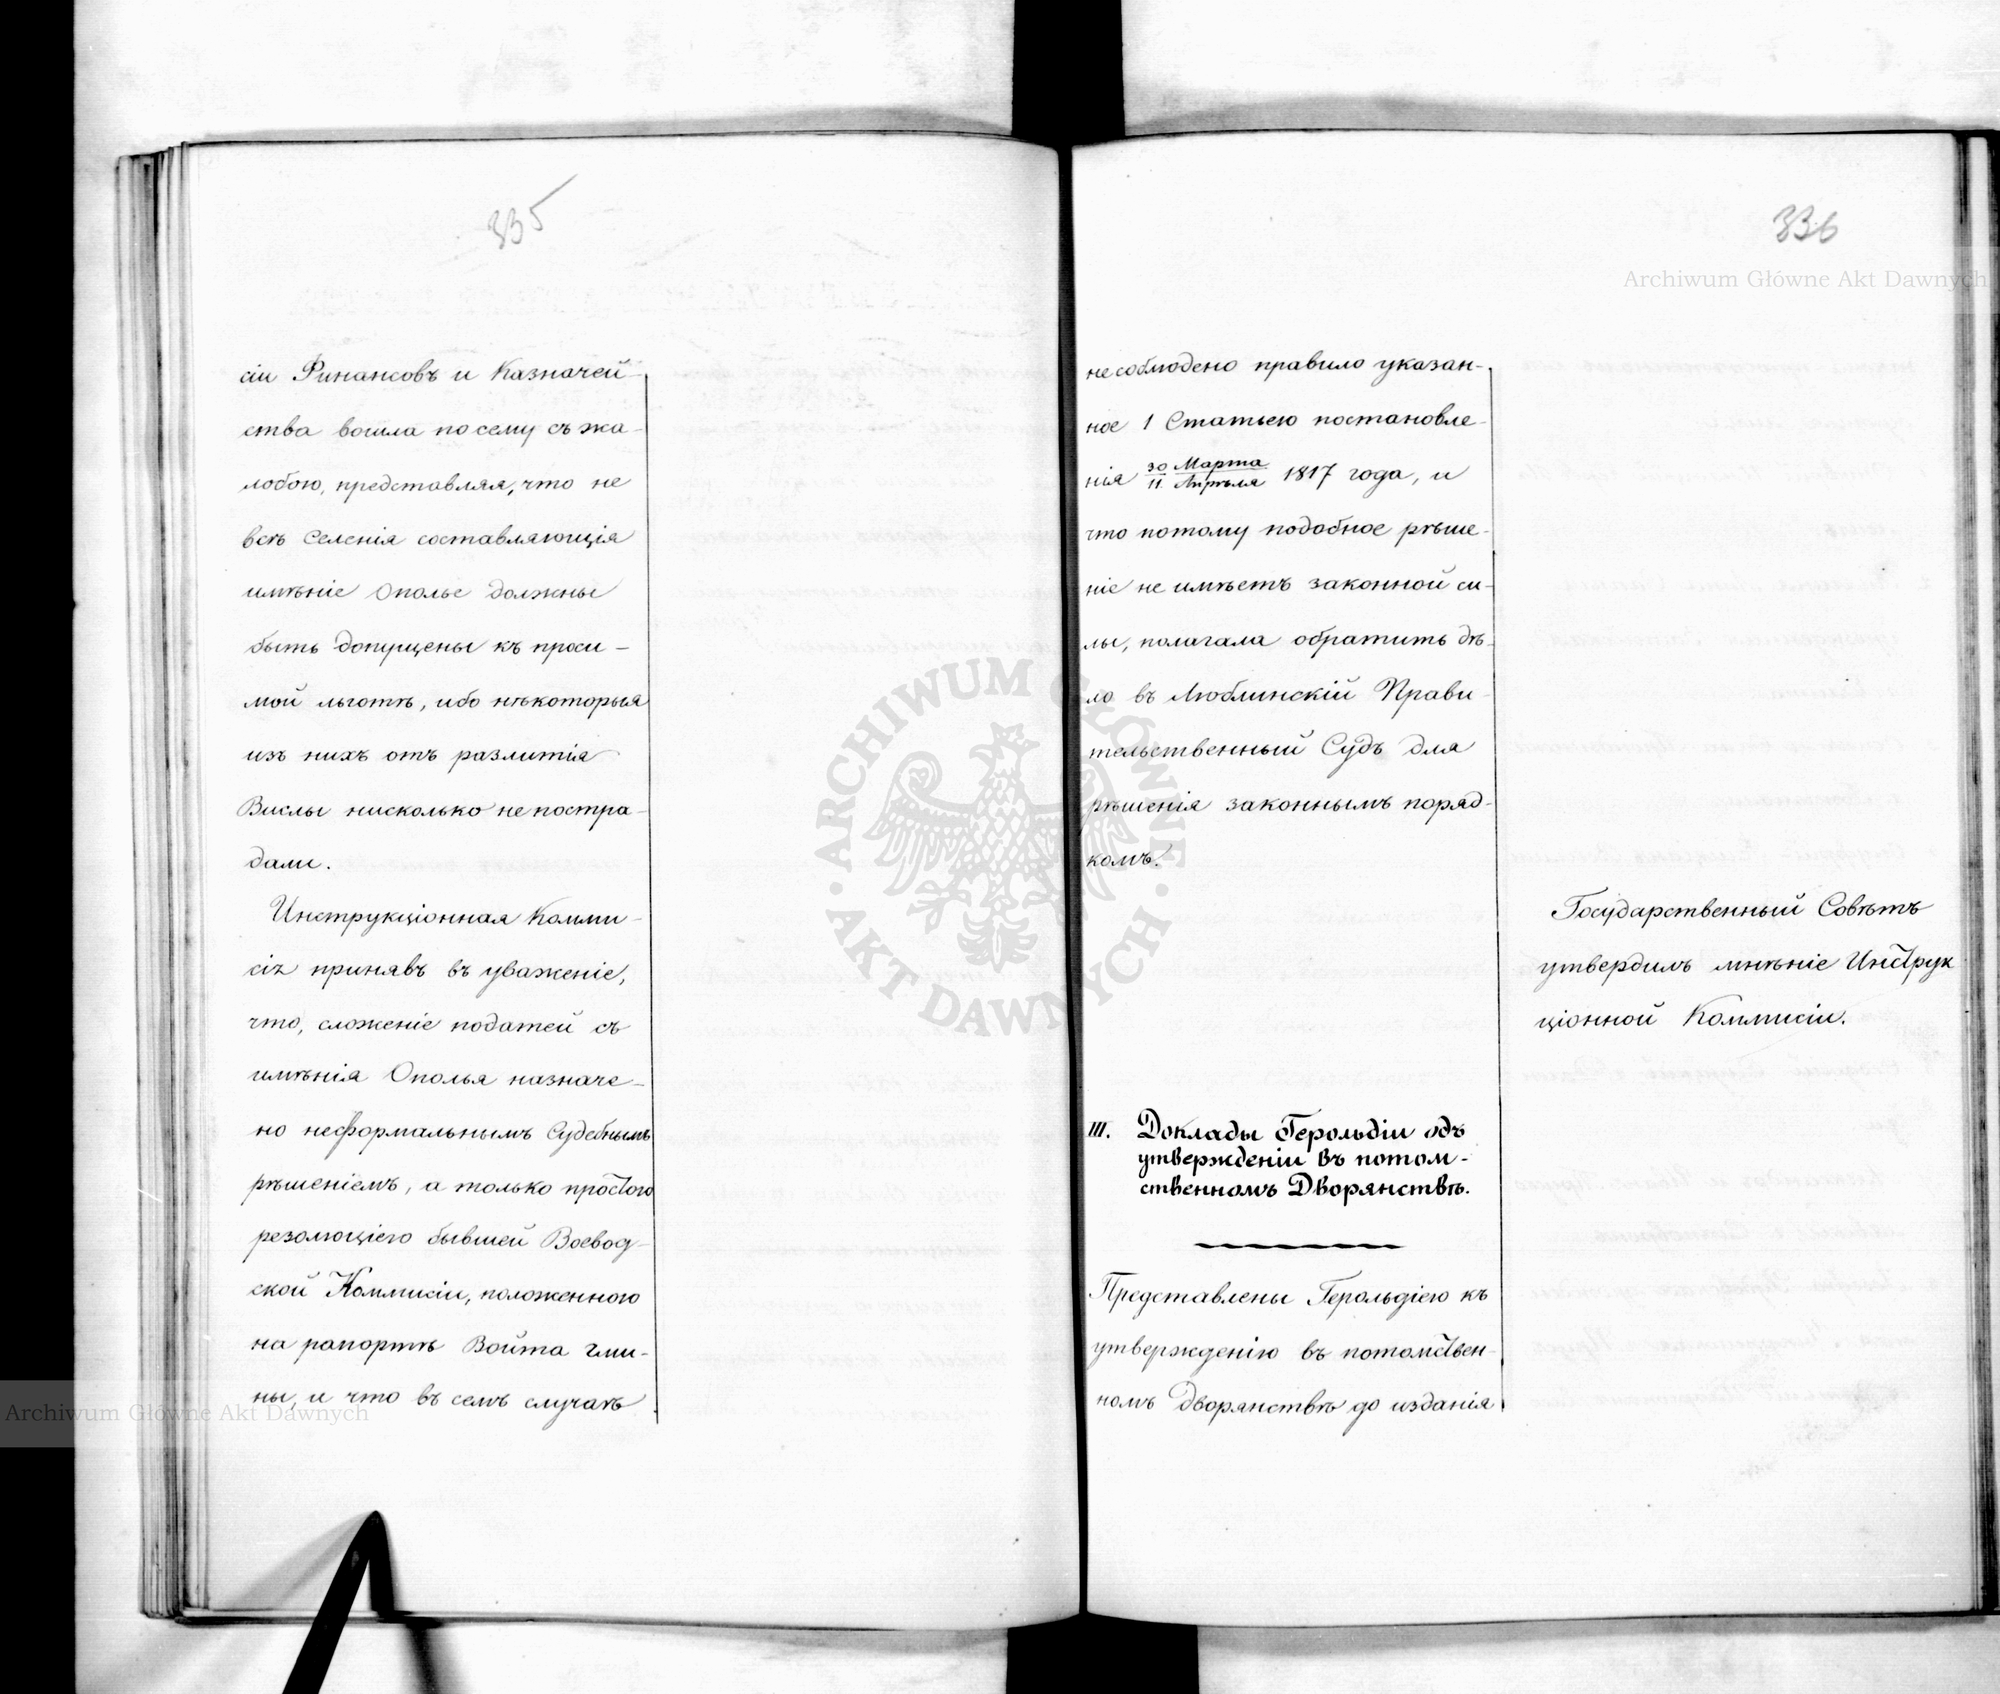 335
сіи Финансовъ и Казначей-
ства вошла по сему съ жа-
лобою, представляя, что не
всѣ Селенія составляющія
имѣніе Ополье должны
быть допущены къ проси-
мой льготѣ, ибо нѣкоторыя
изъ нихъ отъ разлитія
Вислы нисколько не постра-
дали.
Инструкціонная Комми-
сія принявъ въ уваженіе,
что, сложеніе податей съ
имѣнія Ополья назначе-
но неформальнымъ Судебнымъ
рѣшеніемъ, а только простою
резолюціею бывшей Воевод-
ской Коммисіи, положенною
на рапортѣ Войта гми-
ны, и что въ семъ случаѣ
336
не соблюдено правило указан-
ное 1 Статьею постановле-
нія 30 Марта / 11 Апрѣля 1817 года, и
что потому подобное рѣше-
ніе не имѣетъ законной си-
лы, полагала обратить дѣ-
ло въ Люблинскій Прави-
тельственный Судъ для
рѣшенія законнымъ поряд-
комъ.
Государственный Совѣтъ
утвердилъ мнѣніе Инструк
ціонной Коммисіи.
III. Доклады Герольдіи объ
утвержденіи въ потом-
ственномъ Дворянствѣ.
Представлены Герольдіею къ
утвержденію въ потомствен-
номъ Дворянствѣ до изданія
Archiwum Główne Akt Dawnych
Archiwum Główne Akt Dawnych
ARCHIWUM GŁÓWNE · AKT DAWNYCH ·